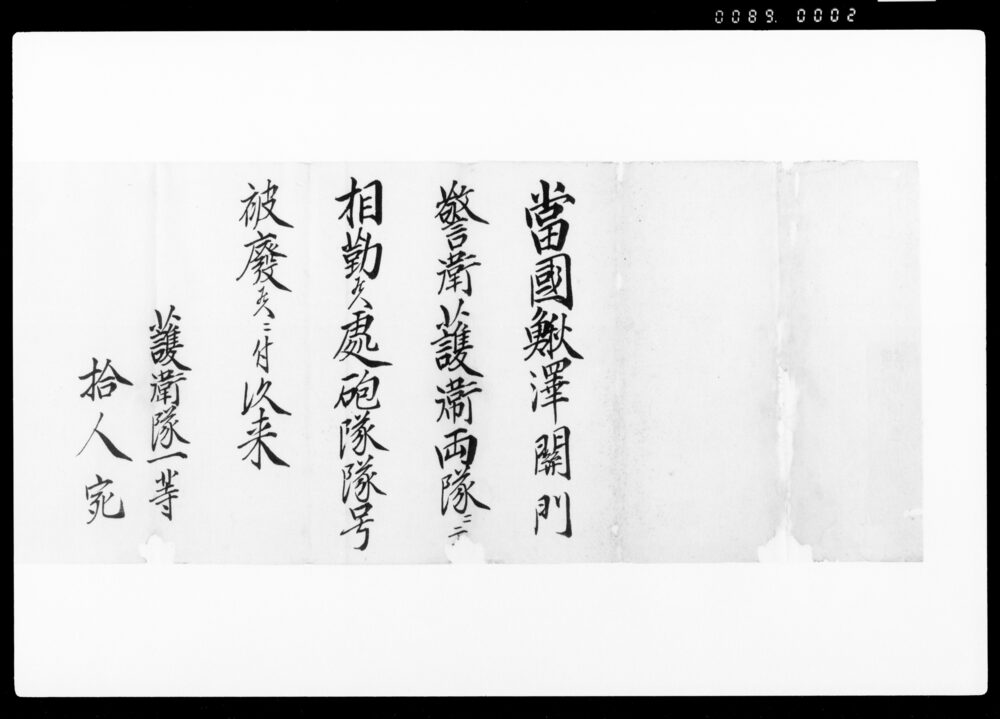 0089. 0002
當國鰍澤關門
警衛護衛両隊ニ而
相勤候處砲隊隊号
被廢候ニ付以来
護衛隊一等
拾人宛